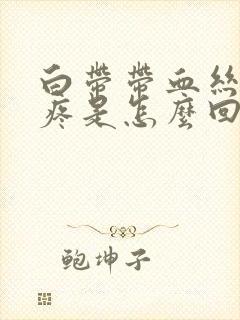 白帶帶血絲
疼是怎麼回
鲍坤子